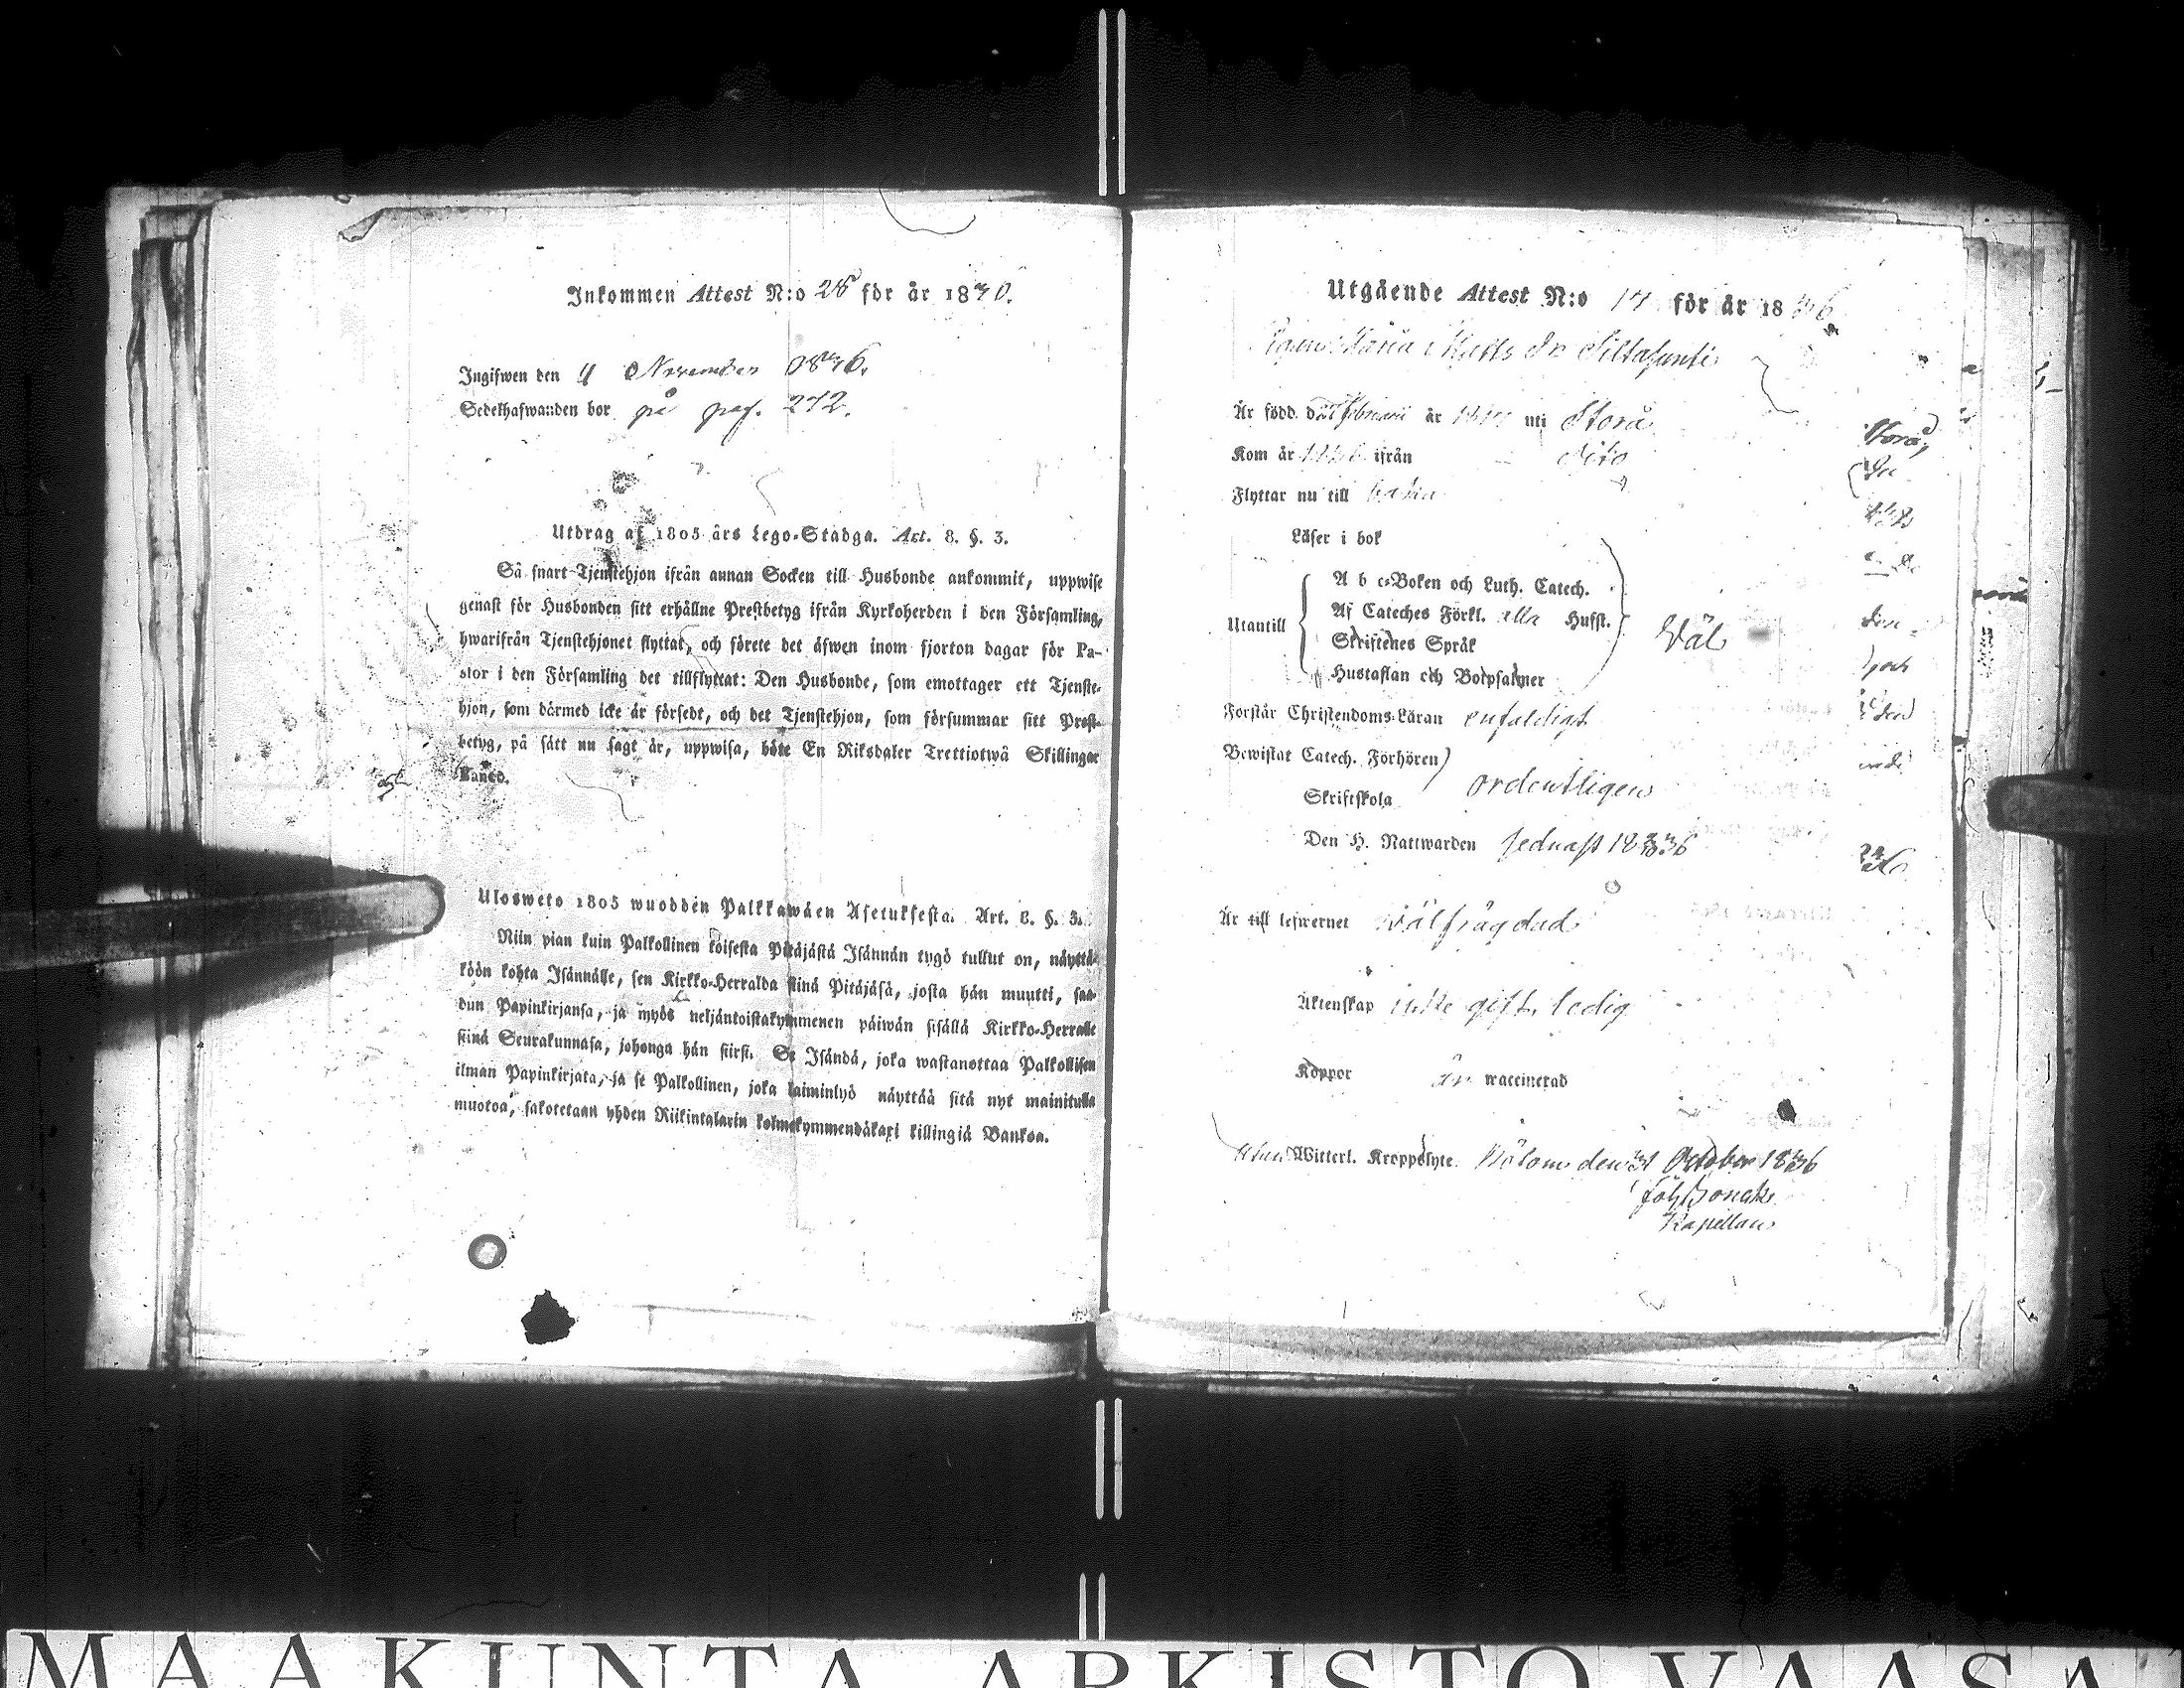 Inkommen Attest N:o 28 för år 1836.
Ingifwen den 4 November 1836.
Sedelhafwanden bor på pag. 272.
Utdrag af 1805 års Lego-Stadga. Art. 8. §. 3.
Så snart Tjenstehjon ifrån annan Socken till Husbonde ankommit, uppwise
genast för Husbonden sitt erhållne Prestbetyg ifrån Kyrkoherden i den Församling,
hwarifrån Tjenstehjonet flyttat, och förete det äfwen inom fjorton dagar för Pa-
stor i den Församling det tillflyttat: Den Husbonde, som emottager ett Tjenste-
hjon, som dermed icke är försedt, och det Tjenstehjon, som försummar sitt Prest-
betyg, på sätt nu sagt är, uppwisa, böte En Riksdaler Trettiotwå Skillingar
Banco.
Ulosweto 1805 wuodden Palkkawäen Asetuksesta. Art. 8. §. 3.
Niin pian kuin Palkollinen toisesta Pitäjästä Isännän tygö tullut on, näyttä-
köön kohta Isännälle, sen Kirkko-Herralda siinä Pitäjäsä, josta hän muutti, saa-
dun Papinkirjansa, ja myös neljäntoistakymmenen päiwän sisällä Kirkko-Herralle
siinä Seurakunnasa, johonga hän siirsi. Se Isändä, joka wastanottaa Palkollisen
ilman Papinkirjata, ja se Palkollinen, joka laiminlyö näyttää sitä nyt mainitulla
muotoa, sakotetaan yhden Riikintalarin kolmekymmendäkaxi killingiä Bankoa.
Utgående Attest N:o 17 för år 1836
Maria Matts Dr Siltasunti
Är född d Februarii år uti Storå
Kom år ifrån dito
Flyttar nu till
Läser i bok
Utantill
A b c-Boken och Luth. Catech.
Af Cateches Förkl. alla Hufst.
Skriftenes Språk
Hustaflan och Botpsalmer
Wäl
Förstår Christendoms-Läran enfaldigt
Bewistat Catech. Förhören
Skriftskola
ordentligen
Den H. Nattwarden sednast 1836
Är till lefwernet wälfrägdad
Äktenskap icke gift, ledig
Koppor är waccinerad
utan Witterl. Kroppslyte. den 31 October 1836
Kapellan
MAAKUNTA ARKISTO VAASA